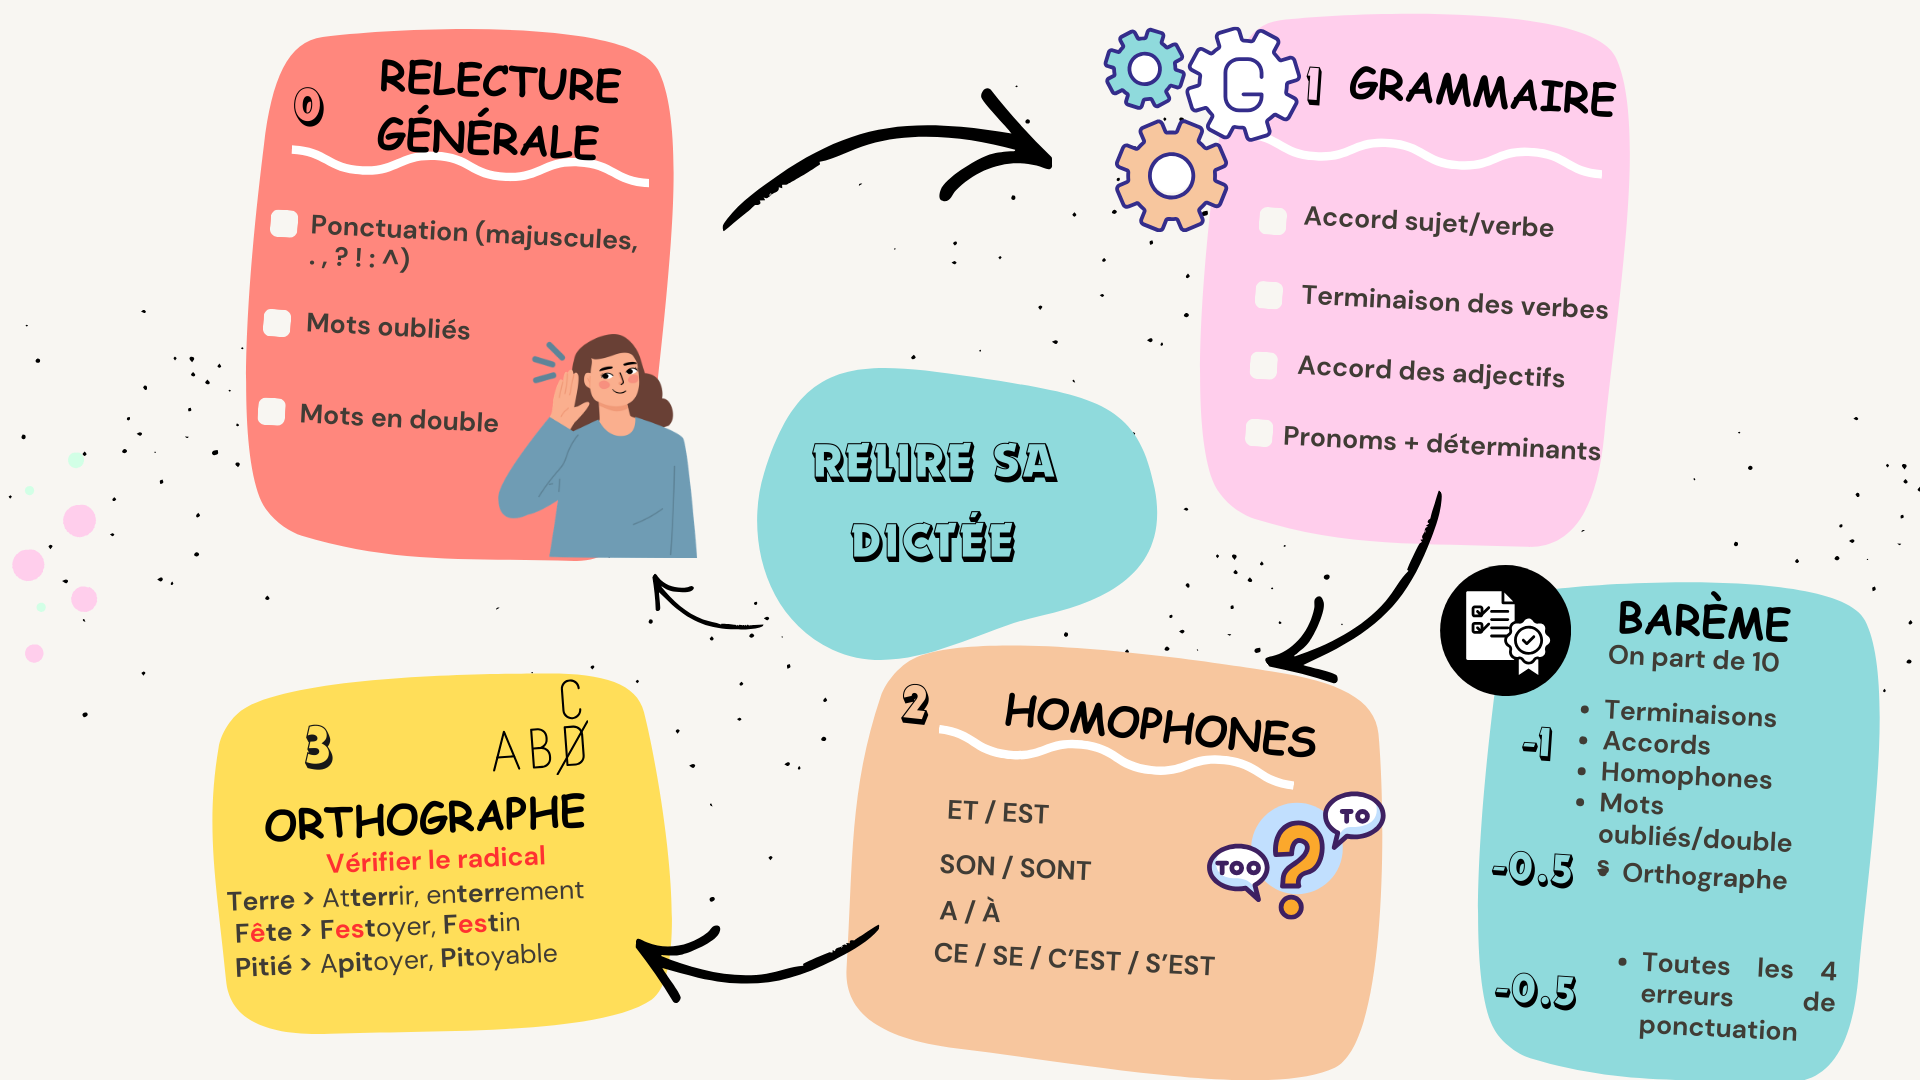 RELIRE SA
DICTÉE
0
RELECTURE
GÉNÉRALE
Ponctuation (majuscules,
. , ? ! : ^)
Mots oubliés
Mots en double
G
1 GRAMMAIRE
Accord sujet/verbe
Terminaison des verbes
Accord des adjectifs
Pronoms + déterminants
2
HOMOPHONES
ET / EST
SON / SONT
A / À
CE / SE / C’EST / S’EST
TO
TOO
?
3
C
A B D
ORTHOGRAPHE
Vérifier le radical
Terre > Atterrir, enterrement
Fête > Festoyer, Festin
Pitié > Apitoyer, Pitoyable
BARÈME
On part de 10
-1
• Terminaisons
• Accords
• Homophones
• Mots
oubliés/double
s
-0.5
• Orthographe
-0.5
• Toutes les 4
erreurs de
ponctuation